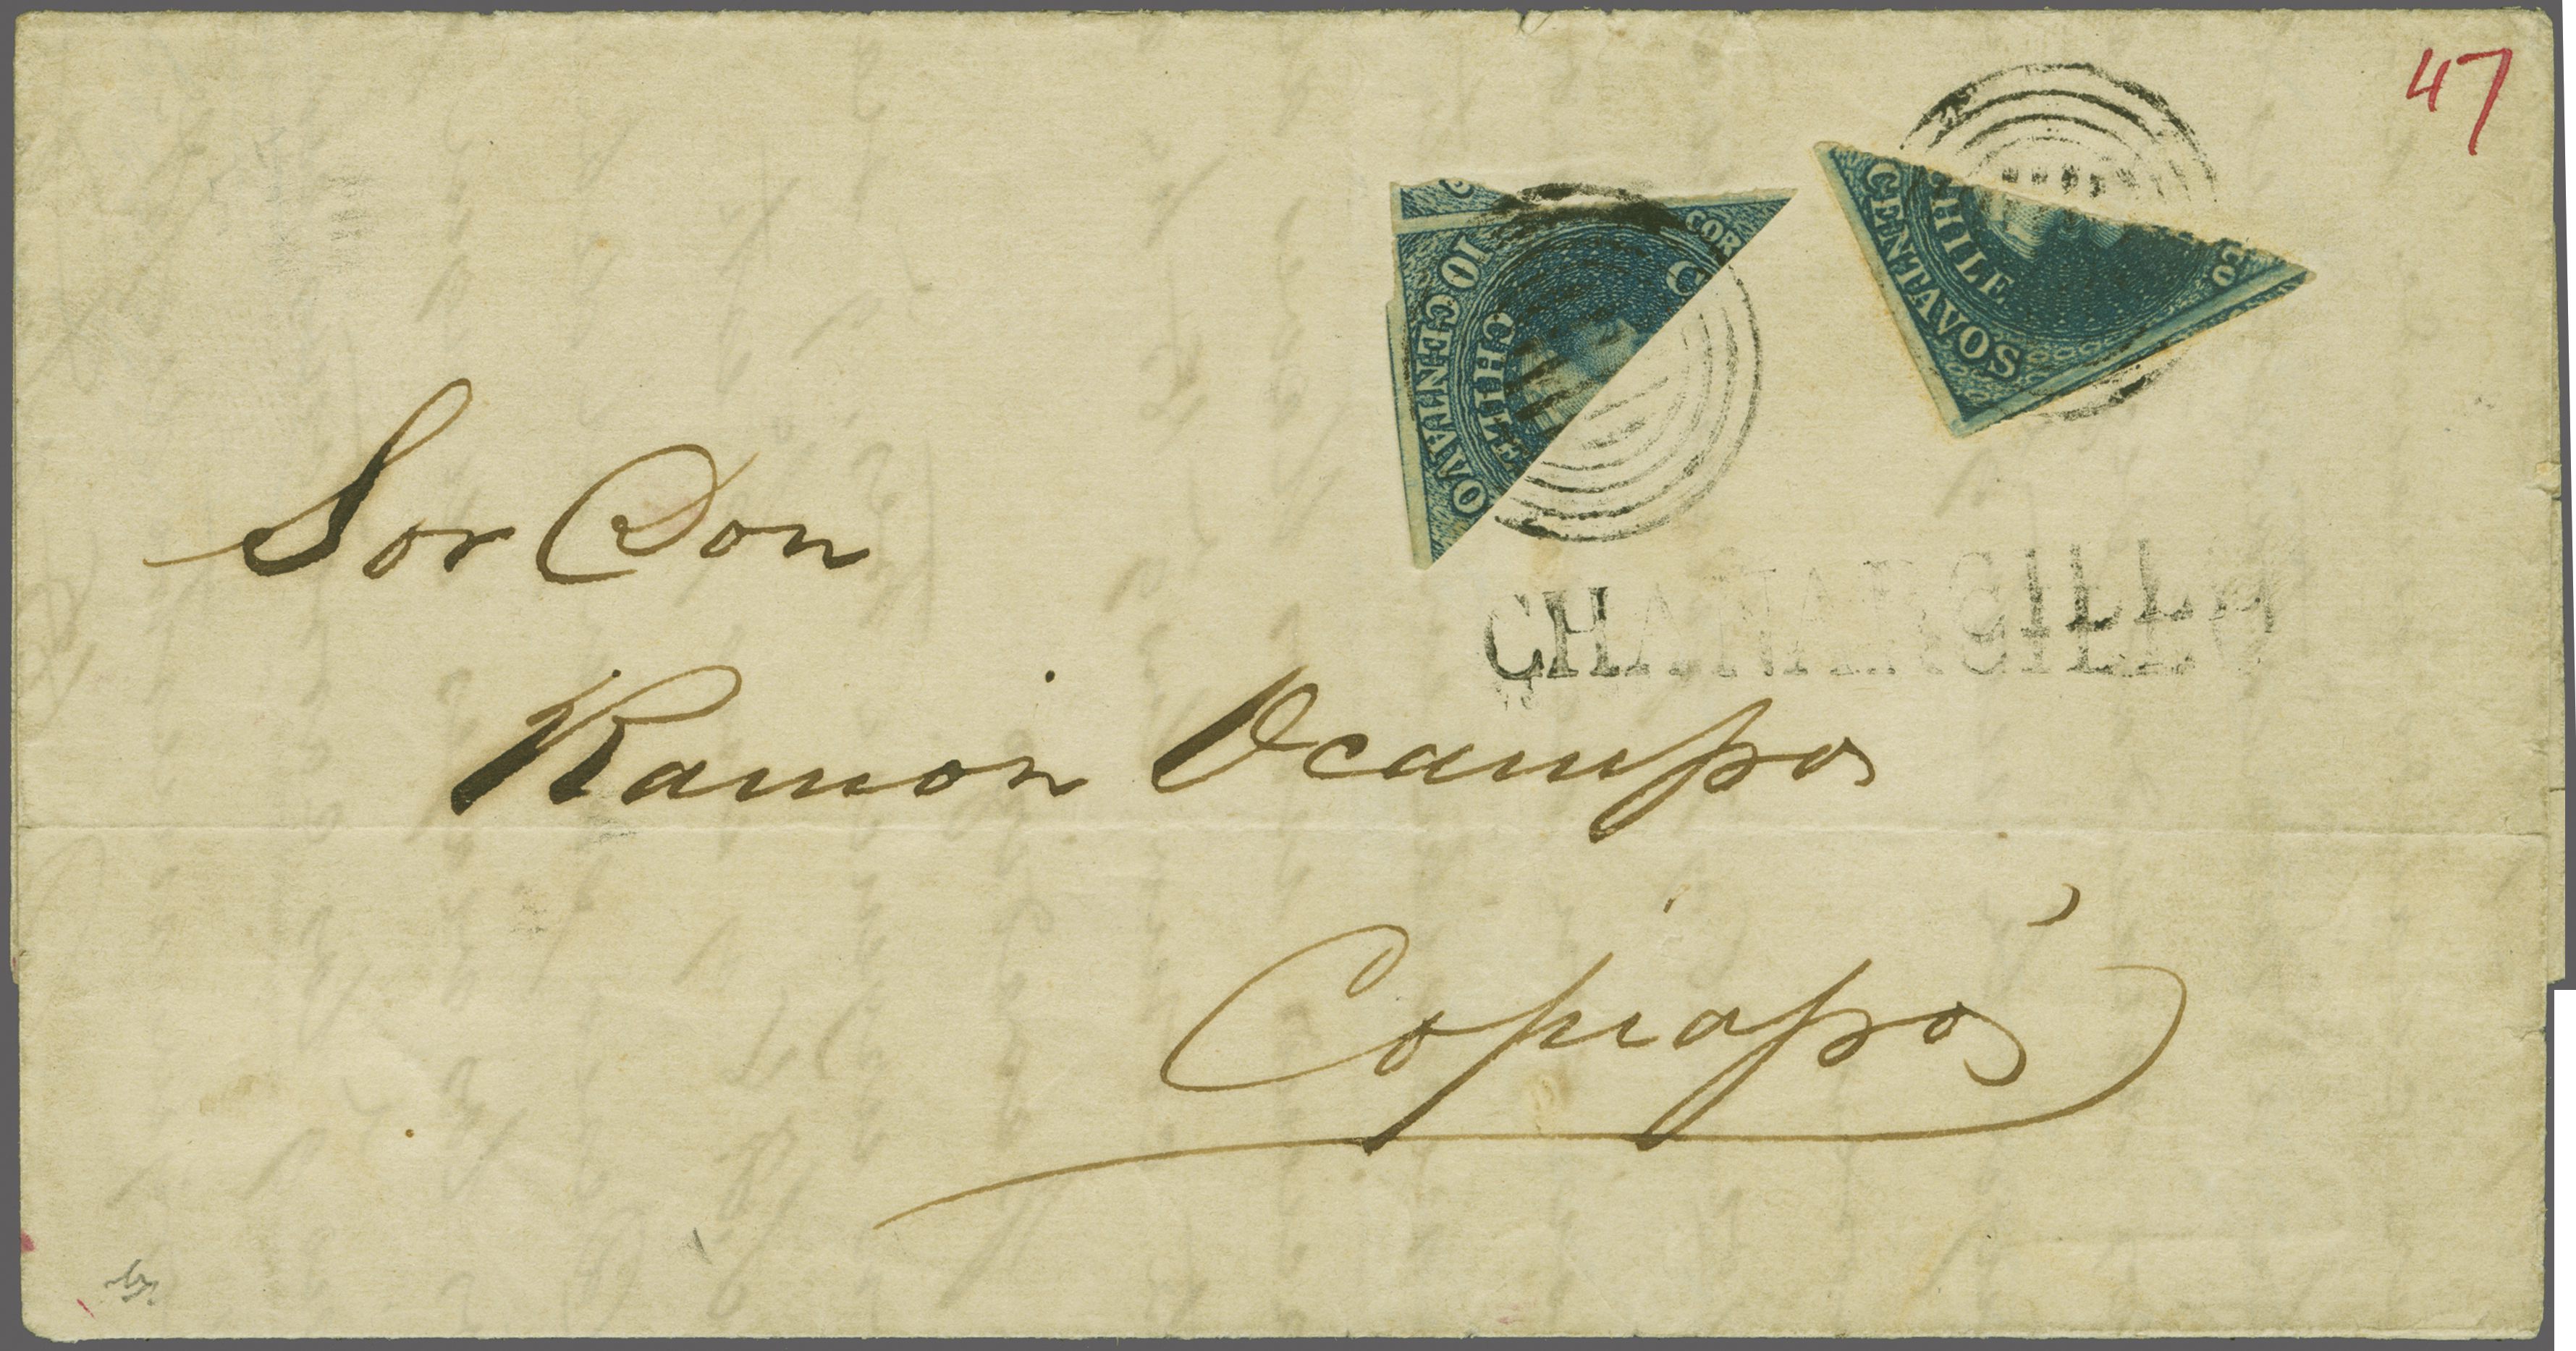 47
CO
CENTAVOS
CHILE
COR
C
10 CENTAVO
CHILE
CHAÑARCILLO
Sor Don
Ramon Ocampo
Copiapó